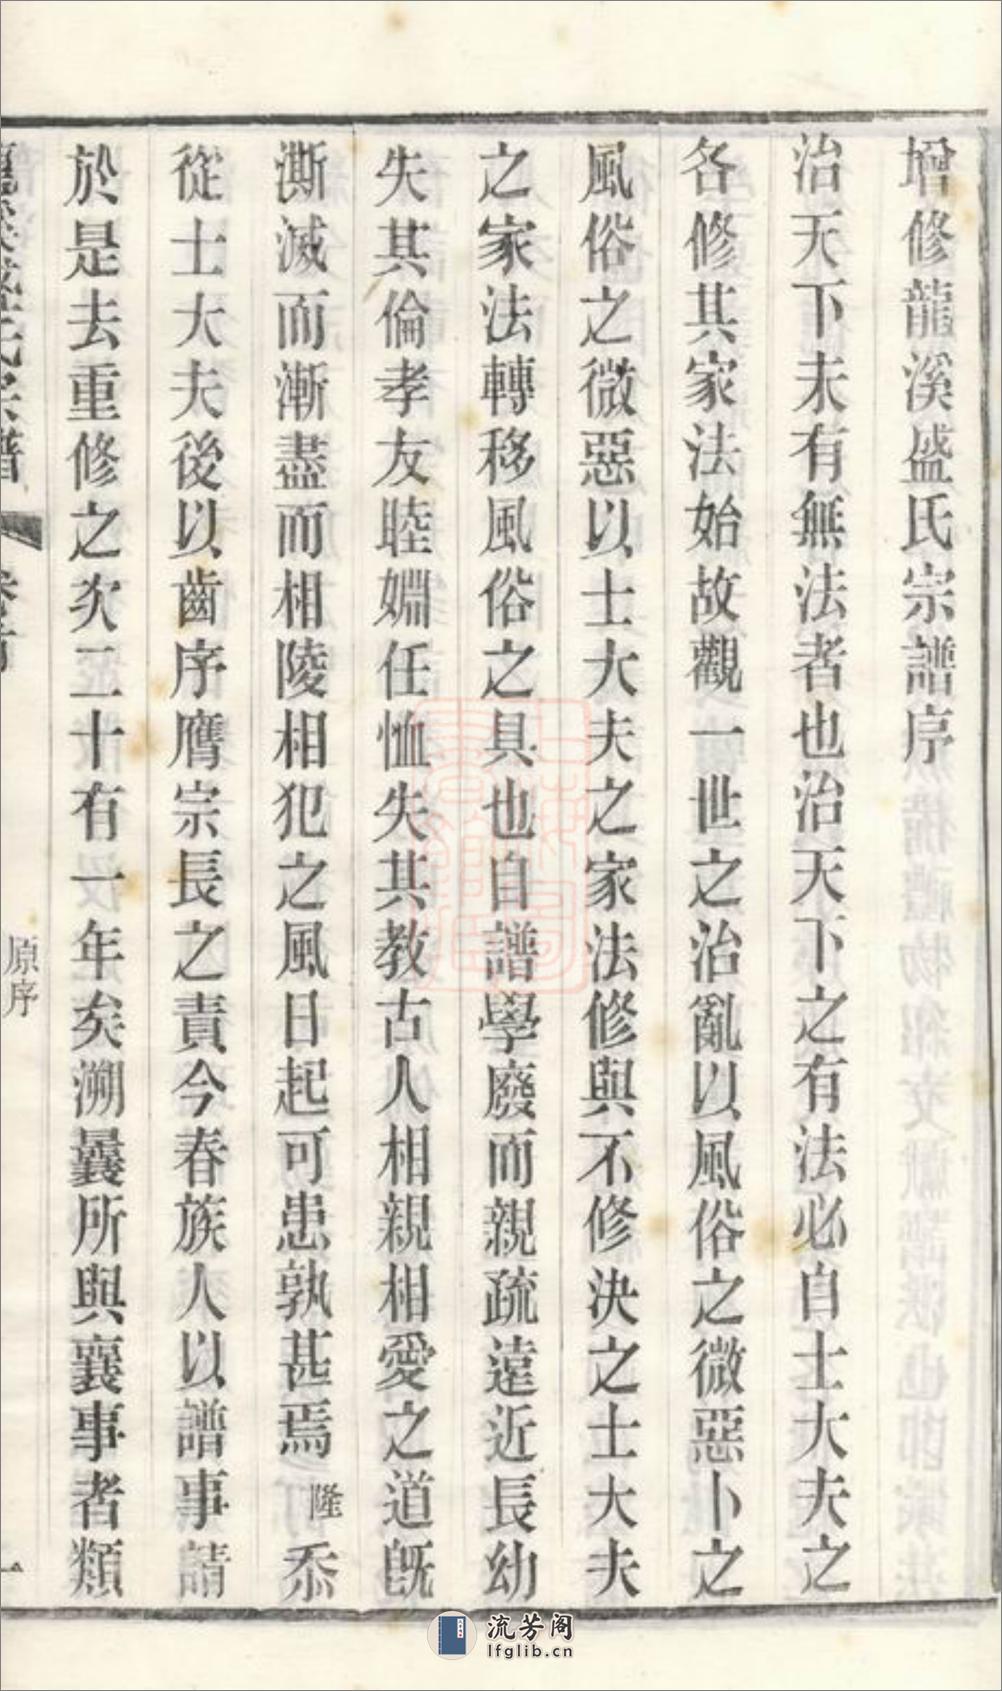 增修龍溪盛氏宗譜序
治天下未有無法者也治天下之有法必自士大夫之
各修其家法始故觀一世之治亂以風俗之微惡卜之
風俗之微惡以士大夫之家法修與不修決之士大夫
之家法轉移風俗之具也自譜學廢而親疏遠近長幼
失其倫孝友睦婣任恤失其教古人相親相愛之道旣
澌滅而漸盡而相陵相犯之風日起可患孰甚焉隆忝
從士大夫後以齒序膺宗長之責今春族人以譜事請
於是去重修之次二十有一年矣溯曩所與襄事者類
龍溪盛氏宗譜
卷首
原序
一
流芳阁
lfglib.cn